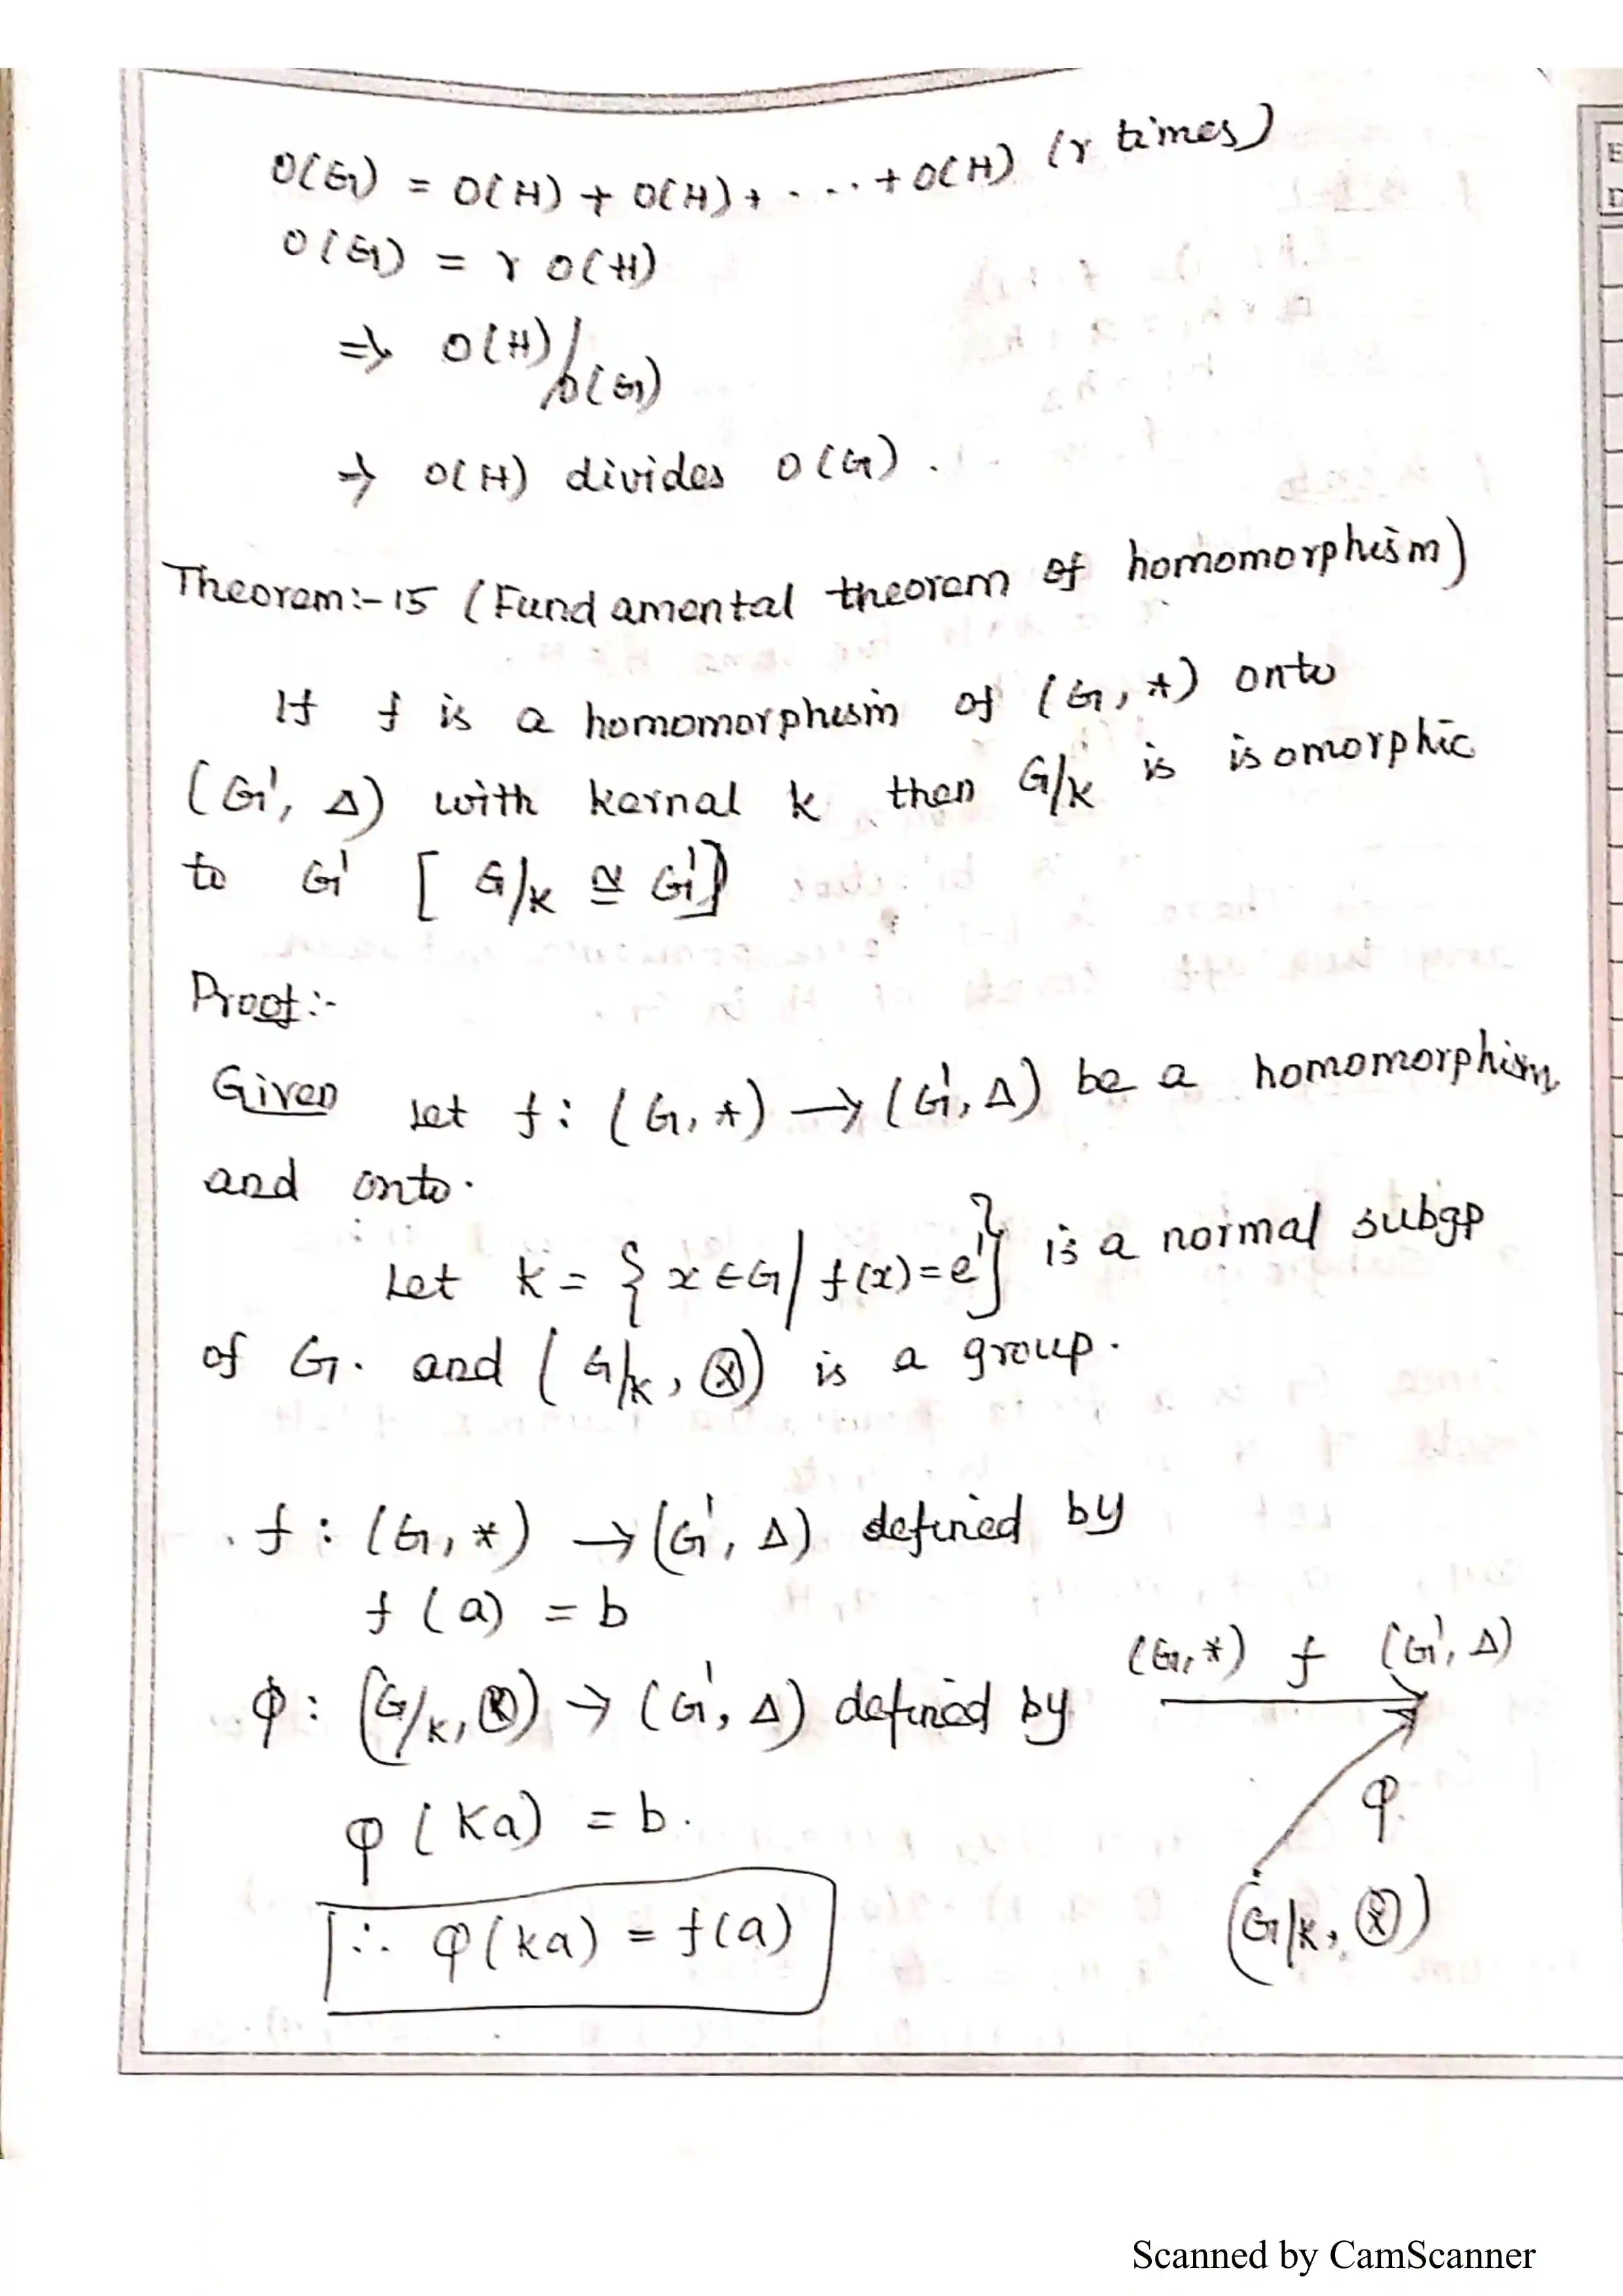 O(G) = O(H) + O(H) + - ... + O(H) (r times)
O(G) = r O(H)
⇒ O(H)/O(G)
⇒ O(H) divides O(G).
Theorem:-15 (Fundamental theorem of homomorphism)
If f is a homomorphism of (G, *) onto
(G', Δ) with kernal k then G/k is isomorphic
to G' [G/k ≅ G']
Proof:-
Given Let f : (G, *) → (G', Δ) be a homomorphism
and onto.
Let k = {x ∈ G / f(x) = e'} is a normal subgp
of G. and (G/k, ⊛) is a group.
f : (G, *) → (G', Δ) defined by
f(a) = b
(G, *) f (G', Δ)
φ : (G/k, ⊛) → (G', Δ) defined by
φ
φ(ka) = b.
∴ φ(ka) = f(a)
(G/k, ⊛)
E
D
Scanned by CamScanner